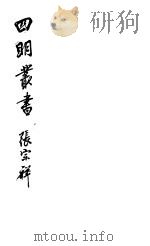 研狗
四明叢書 張宗祥
mtoou.info